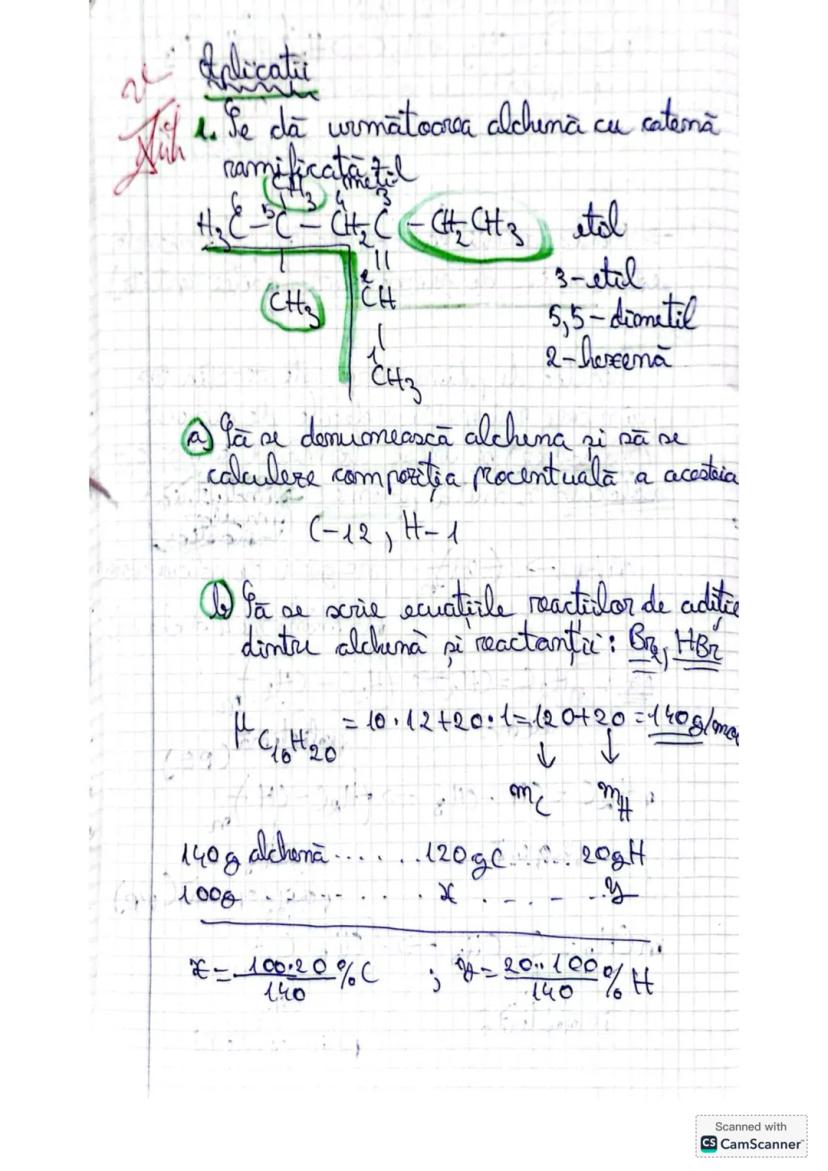 Aplicatii
1. Se dă următoarea alchenă cu catenă
ramificată
metil
CH3
6 5 4 3
H3C - C - CH2 C - CH2 CH3 etil
|| 3-etil
CH3 2 CH 5,5-dimetil
| 2-hexenă
1 CH3
a) Să se denumească alchena și să se
calculeze compoziția procentuală a acesteia
C-12, H-1
b) Să se scrie ecuațiile reacțiilor de adiție
dintre alchenă și reactanții: Br2, HBr
μ C10H20 = 10·12+20·1=120+20=140g/mo
↓ ↓
mC mH
140g alchenă......120gC.......20gH
100g.............x.......y
x = 100·20/140 %C ; y = 20·100/140 % H
Scanned with
CS CamScanner